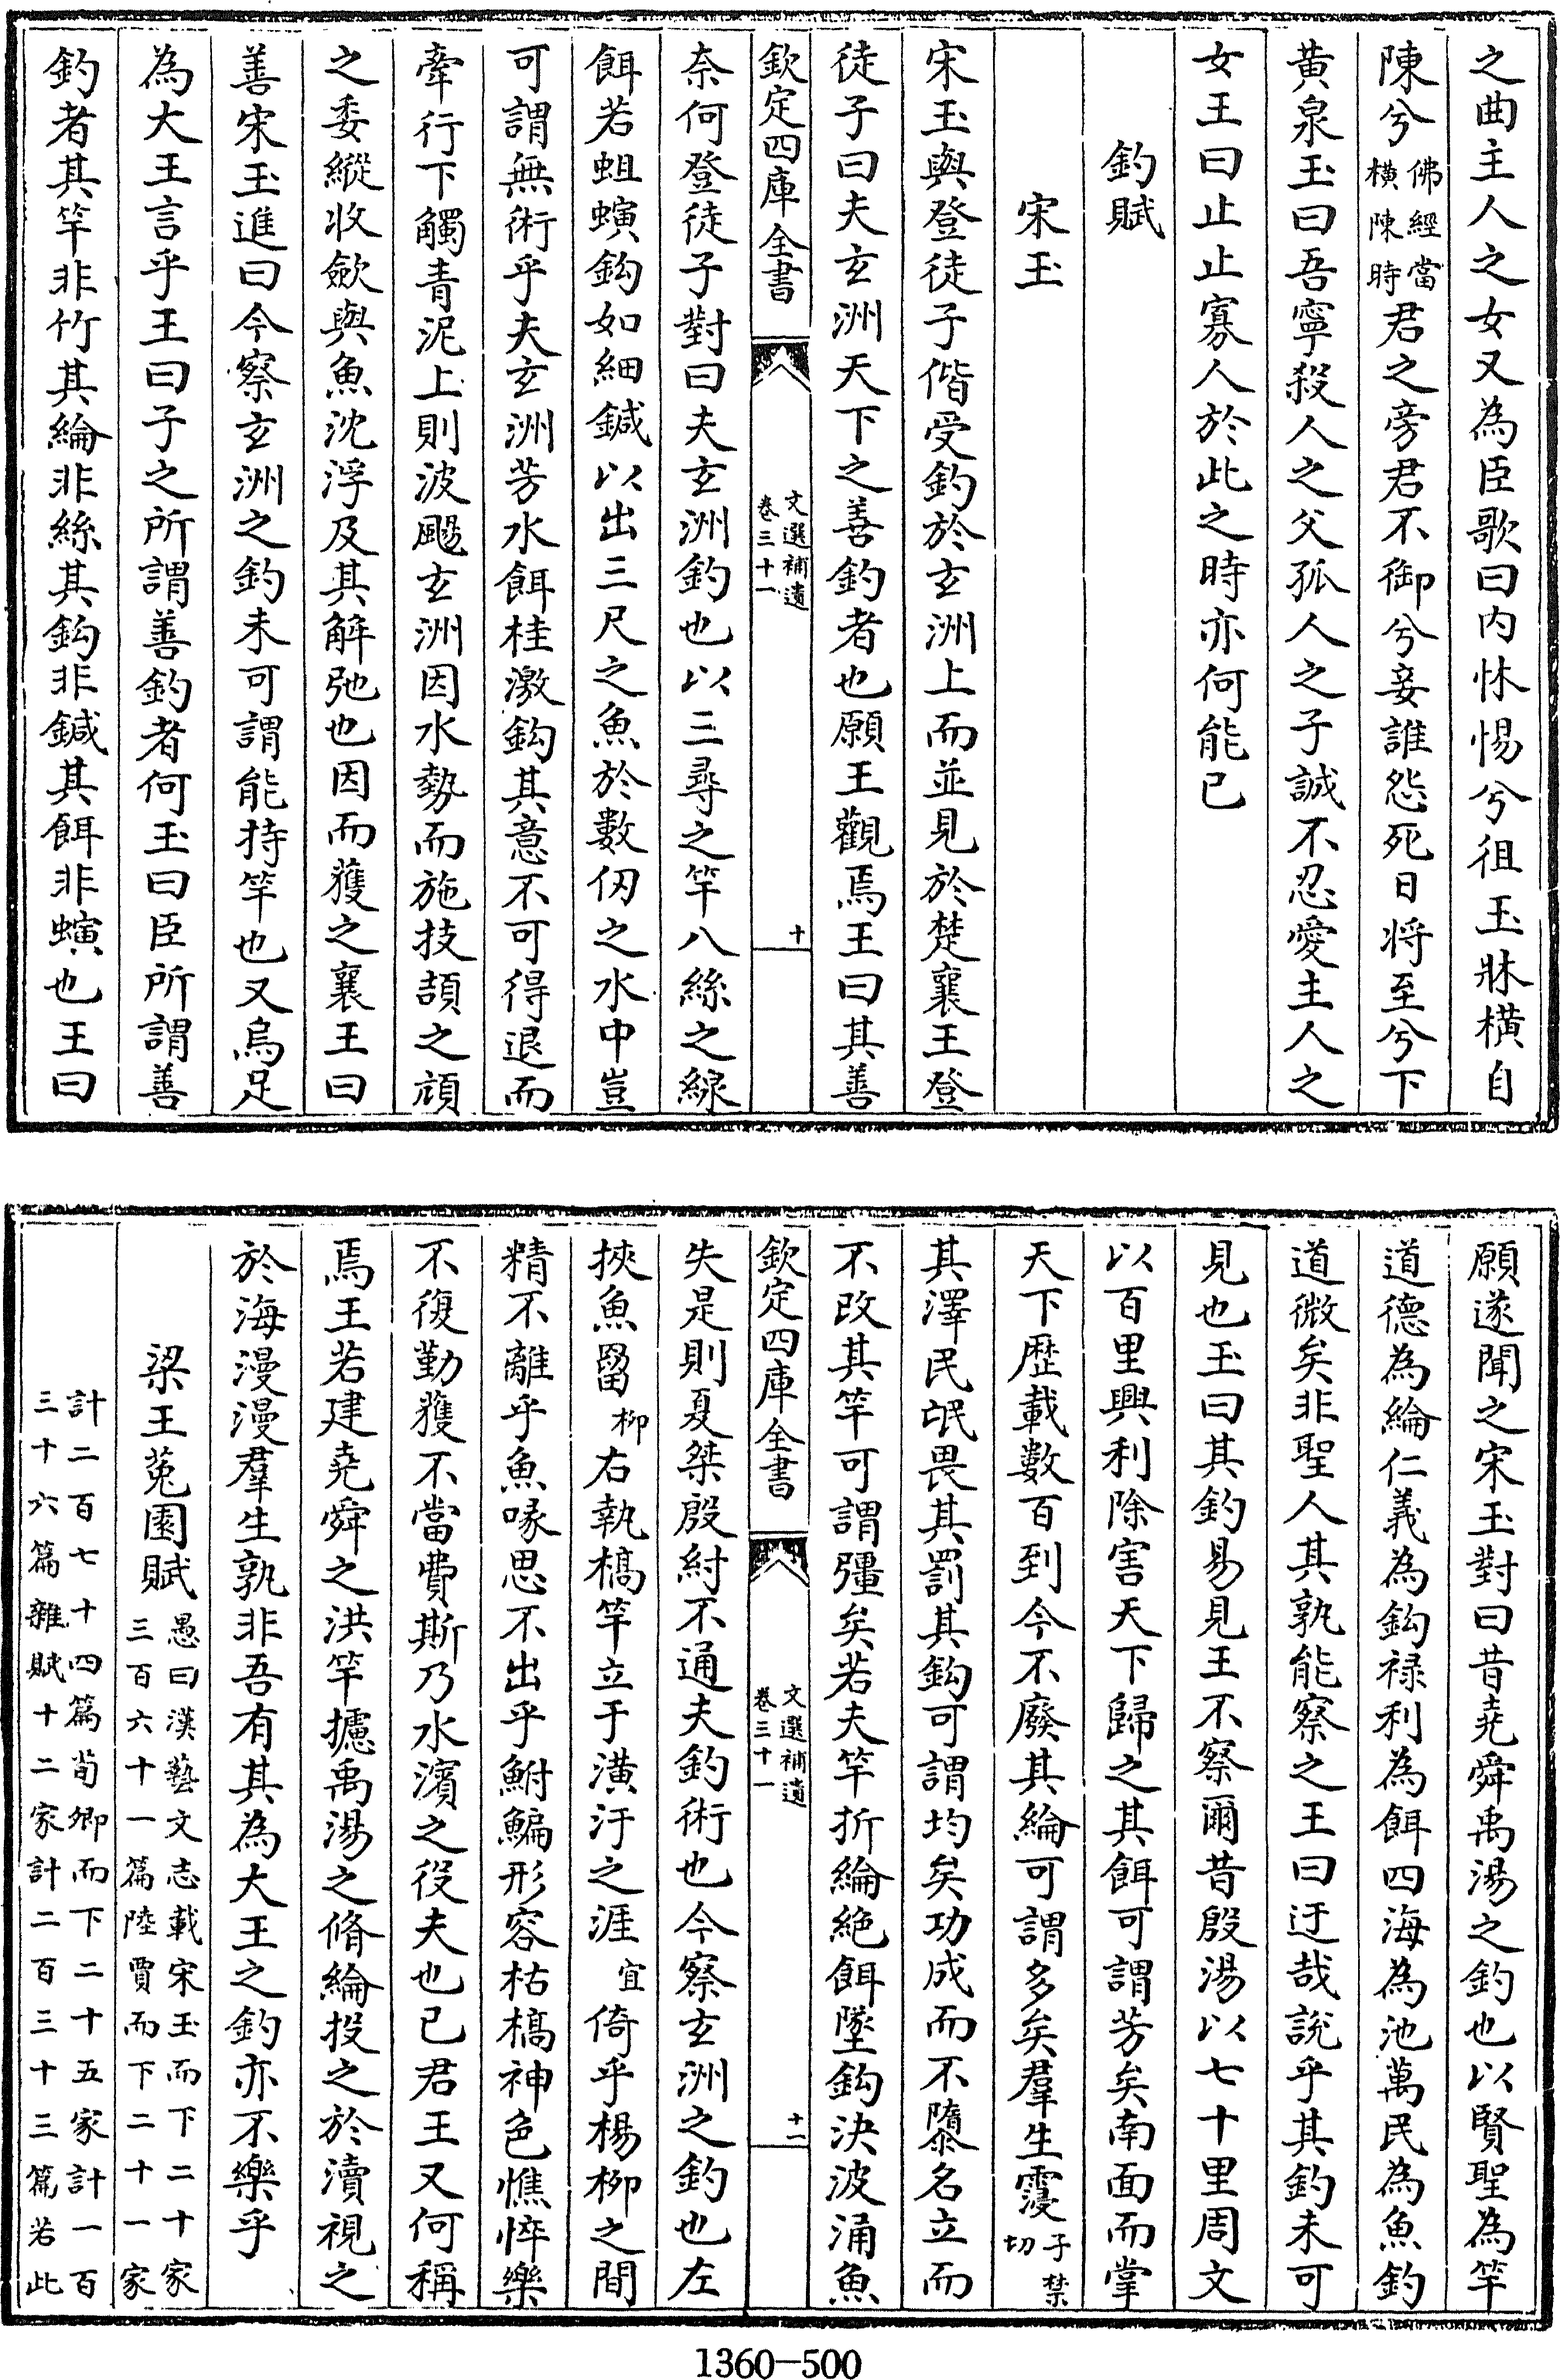 之曲主人之女又為臣歌曰内怵惕兮徂玉牀横自
陳兮佛經當横陳時君之旁君不御兮妾誰怨死日将至兮下
黄泉玉曰吾寧殺人之父孤人之子誠不忍愛主人之
女王曰止止寡人於此之時亦何能已
釣賦
宋玉
宋玉與登徒子偕受釣於玄洲上而並見於楚襄王登
徒子曰夫玄洲天下之善釣者也願王觀焉王曰其善
欽定四庫全書
文選補遺
卷三十一
十
奈何登徒子對曰夫玄洲釣也以三尋之竿八絲之綠
餌若蛆螾鈎如細鍼以出三尺之魚於數仞之水中豈
可謂無術乎夫玄洲芳水餌桂激鈎其意不可得退而
牽行下觸青泥上則波颺玄洲因水勢而施技頡之頏
之委縱收斂與魚沈浮及其解弛也因而獲之襄王曰
善宋玉進曰今察玄洲之釣未可謂能持竿也又烏足
為大王言乎王曰子之所謂善釣者何玉曰臣所謂善
釣者其竿非竹其綸非絲其鈎非鍼其餌非螾也王曰
願遂聞之宋玉對曰昔堯舜禹湯之釣也以賢聖為竿
道德為綸仁義為鈎禄利為餌四海為池萬民為魚釣
道微矣非聖人其孰能察之王曰迂哉說乎其釣未可
見也玉曰其釣易見王不察爾昔殷湯以七十里周文
以百里興利除害天下歸之其餌可謂芳矣南面而掌
天下歴載數百到今不廢其綸可謂多矣羣生寖子禁切
其澤民氓畏其罰其鈎可謂均矣功成而不隳名立而
不改其竿可謂彊矣若夫竿折綸絶餌墜鈎決波涌魚
欽定四庫全書
文選補遺
卷三十一
十一
失是則夏桀殷紂不通夫釣術也今察玄洲之釣也左
挾魚罶柳右執槁竿立于潢汙之涯宜倚乎楊柳之間
精不離乎魚喙思不出乎鮒鯿形容枯槁神色憔悴樂
不復勤獲不當費斯乃水濱之役夫也已君王又何稱
焉王若建堯舜之洪竿攄禹湯之脩綸投之於瀆視之
於海漫漫羣生孰非吾有其為大王之釣亦不樂乎
梁王菟園賦愚曰漢藝文志載宋玉而下二十家三百六十一篇陸賈而下二十一家
計二百七十四篇荀卿而下二十五家計一百三十六篇雜賦十二家計二百三十三篇若此
1360-500